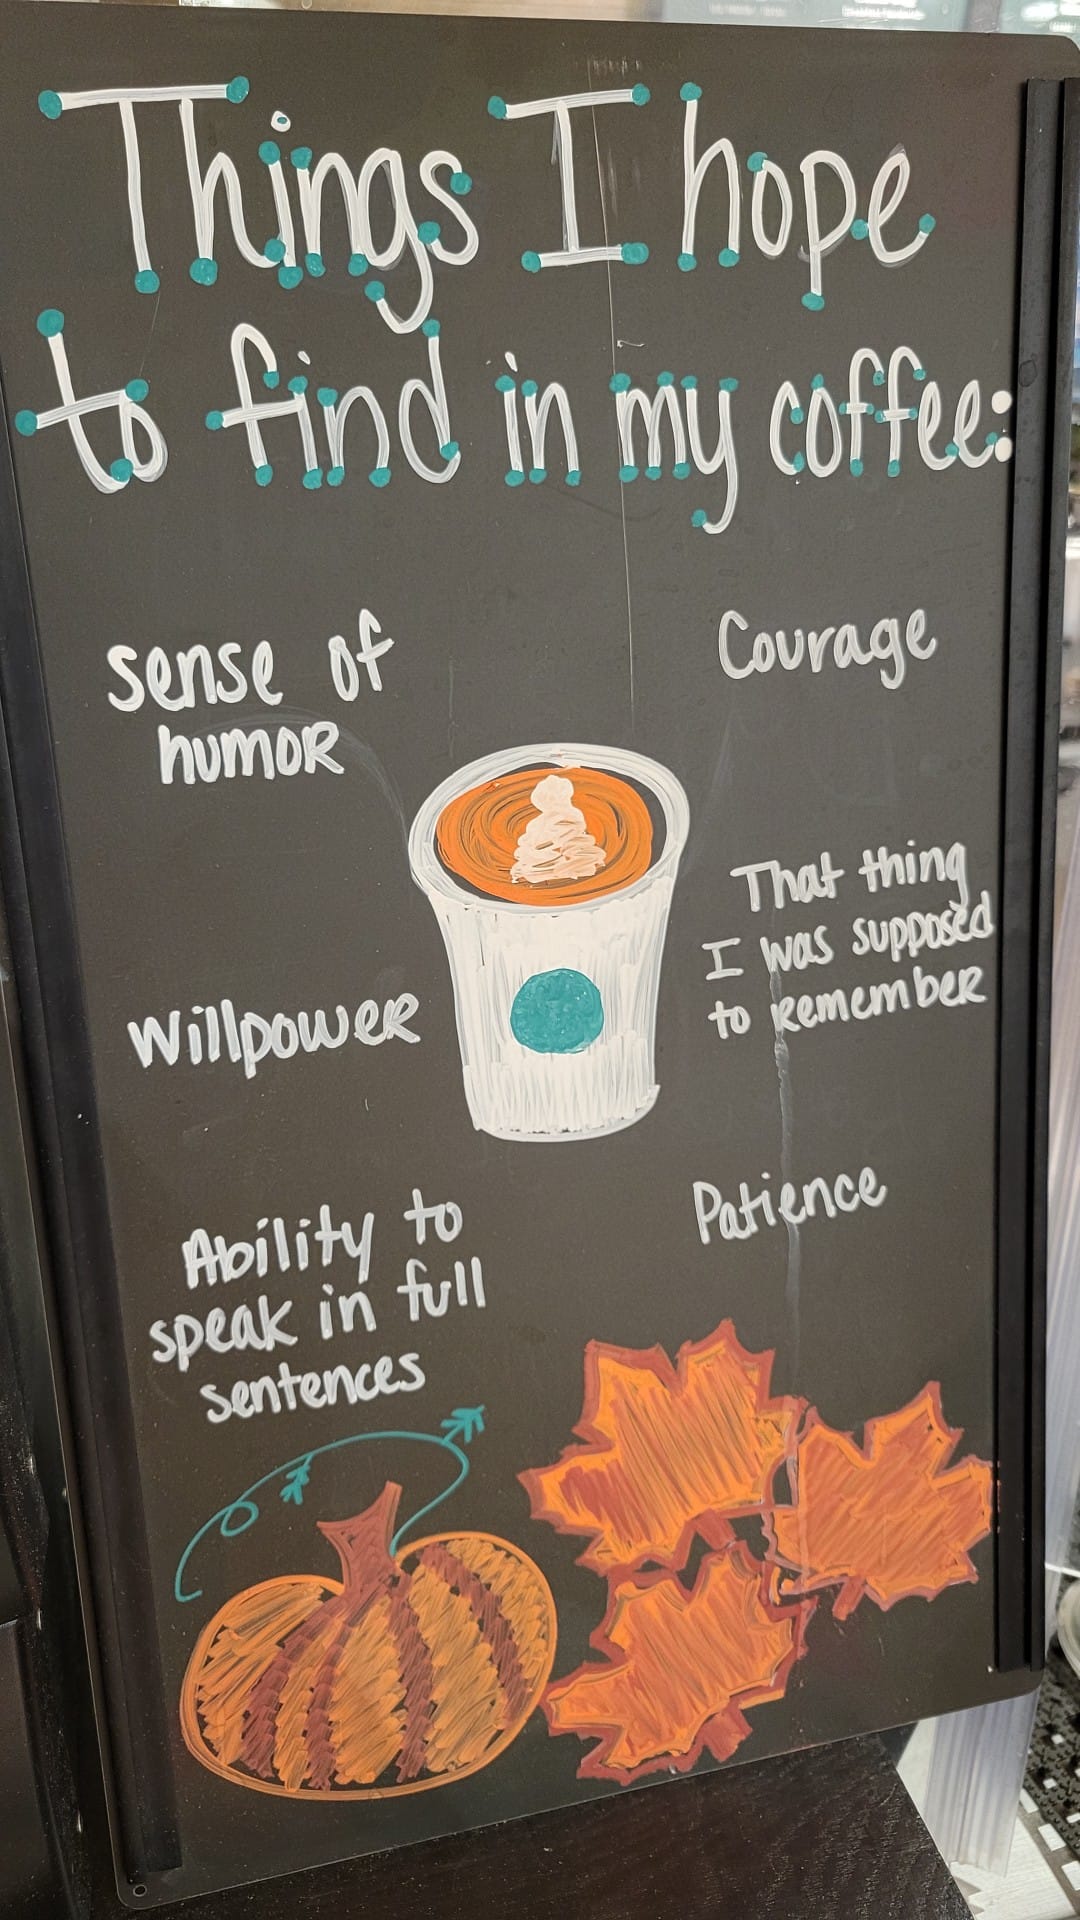 Things I hope
to find in my coffee:
sense of
humor
Courage
That thing
I was supposed
to remember
Willpower
Patience
Ability to
speak in full
sentences